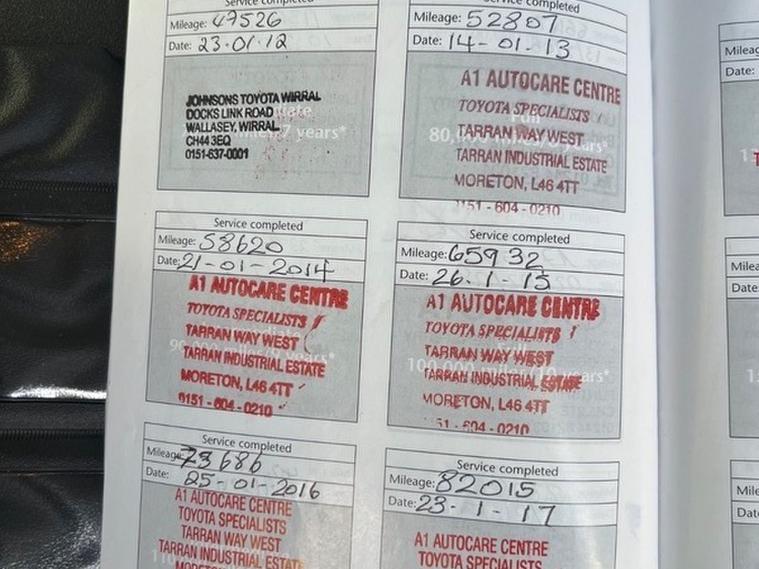 Service completed
Mileage: 47526
Date: 23.01.12
JOHNSONS TOYOTA WIRRAL
DOCKS LINK ROAD
WALLASEY, WIRRAL
CH44 3EQ
0151-637-0001
7 years*
Service completed
Mileage: 52807
Date: 14-01-13
A1 AUTOCARE CENTRE
TOYOTA SPECIALISTS
TARRAN WAY WEST
TARRAN INDUSTRIAL ESTATE
MORETON, L46 4TT
0151-604-0210
Service completed
Mileage: 58620
Date: 21-01-2014
A1 AUTOCARE CENTRE
TOYOTA SPECIALISTS
TARRAN WAY WEST
TARRAN INDUSTRIAL ESTATE
MORETON, L46 4TT
0151-604-0210
Service completed
Mileage: 65932
Date: 26.1-15
A1 AUTOCARE CENTRE
TOYOTA SPECIALISTS
TARRAN WAY WEST
TARRAN INDUSTRIAL ESTATE
MORETON, L46 4TT
51-604-0210
Service completed
Mileage: 73686
Date: 25-01-2016
A1 AUTOCARE CENTRE
TOYOTA SPECIALISTS
TARRAN WAY WEST
TARRAN INDUSTRIAL ESTATE
Service completed
Mileage: 82015
Date: 23-1-17
A1 AUTOCARE CENTRE
TOYOTA SPECIALISTS